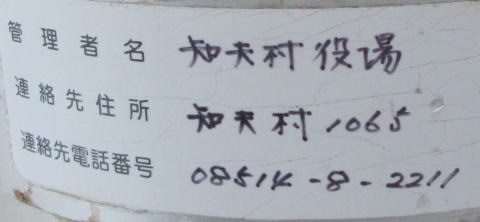 管理者名 知夫村役場
連絡先住所 知夫村1065
連絡先電話番号 08514-8-2211